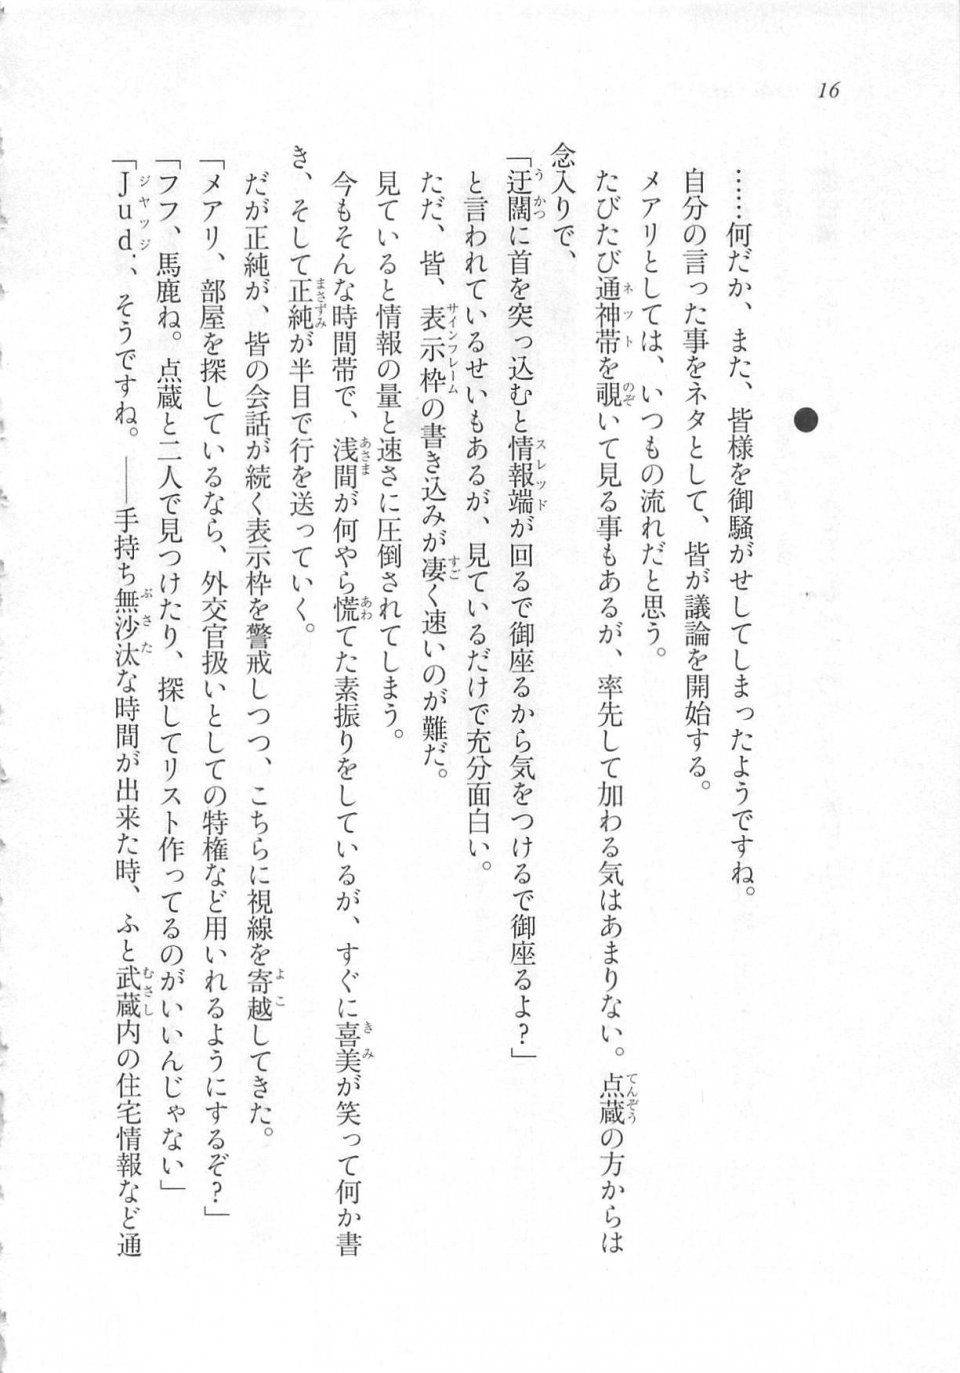 16
●
……何だか、また、皆様を御騒がせしてしまったようですね。
自分の言った事をネタとして、皆が議論を開始する。
メアリとしては、いつもの流れだと思う。
たびたび通神帯を覗いて見る事もあるが、率先して加わる気はあまりない。点蔵の方からは
念入りで、
「迂闊に首を突っ込むと情報端が回るで御座るから気をつけるで御座るよ？」
と言われているせいもあるが、見ているだけで充分面白い。
ただ、皆、表示枠の書き込みが凄く速いのが難だ。
見ていると情報の量と速さに圧倒されてしまう。
今もそんな時間帯で、浅間が何やら慌てた素振りをしているが、すぐに喜美が笑って何か書
き、そして正純が半目で行を送っていく。
だが正純が、皆の会話が続く表示枠を警戒しつつ、こちらに視線を寄越してきた。
「メアリ、部屋を探しているなら、外交官扱いとしての特権など用いれるようにするぞ？」
「フフ、馬鹿ね。点蔵と二人で見つけたり、探してリスト作ってるのがいいんじゃない」
「Ｊｕｄ．、そうですね。――手持ち無沙汰な時間が出来た時、ふと武蔵内の住宅情報など通